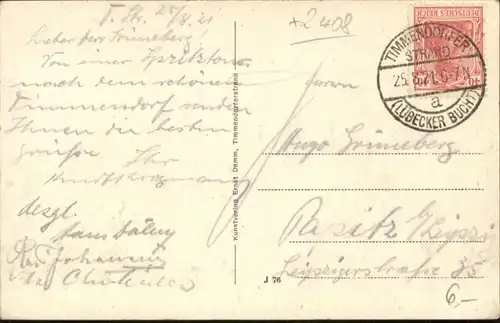 T. Str. 25/8. 21
Lieber Herr Grüneberg!
Von einer Spritztour
nach dem schönen
Timmendorf senden
Ihnen die besten
Grüsse Ihr
desgl.
+2408
Kunstverlag Ernst Damm, Timmendorferstrand
J 76
DEUTSCHES REICH
TIMMENDORFER
STRAND
25.8.21. 6-7 N
a
(LÜBECKER BUCHT)
Herrn
Hugo Grüneberg
Rositz b/ Leipzi
Leipzigerstraße 35
6,-